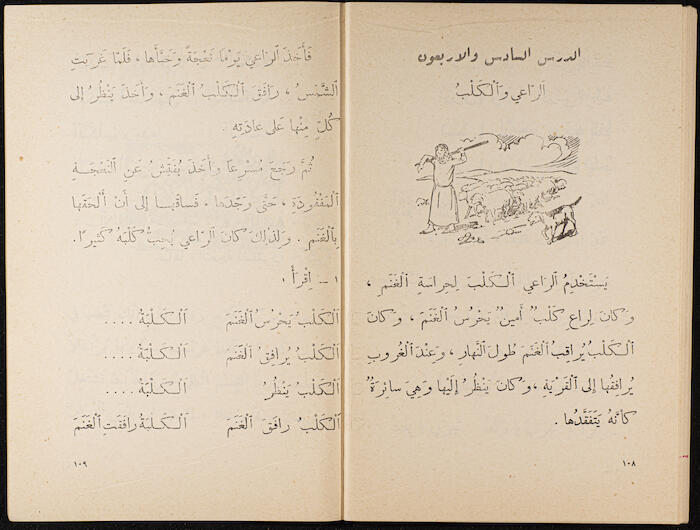 الدرس السادس والاربعون
اَلرّاعي وَٱلْكَلْبُ
يَسْتَخْدِمُ ٱلرّاعي ٱلْكَلْبَ لِحِراسَةِ ٱلْغَنَمِ ،
وَكانَ لِراعٍ كَلْبٌ أَمينٌ يَحْرُسُ ٱلْغَنَمَ ، وَكانَ
ٱلْكَلْبُ يُراقِبُ ٱلْغَنَمَ طولَ ٱلنَّهارِ ، وَعِنْدَ ٱلْغُروبِ
يُرافِقُها إِلى ٱلْقَرْيَةِ ، وَكانَ يَنْظُرُ إِلَيْها وَهِيَ سائِرَةٌ
كَأَنَّهُ يَتَفَقَّدُها .
١٠٨
فَأَخَذَ ٱلرّاعي يَوْمًا نَعْجَةً وَخَبَّأَها ، فَلَمّا غَرَبَتِ
ٱلشَّمْسُ ، رافَقَ ٱلْكَلْبُ ٱلْغَنَمَ ، وَأَخَذَ يَنْظُرُ إِلى
كُلٍّ مِنْها عَلى عادَتِهِ .
ثُمَّ رَجَعَ مُسْرِعًا وَأَخَذَ يُفَتِّشُ عَنِ ٱلنَّعْجَةِ
ٱلْمَفْقودَةِ ، حَتّى وَجَدَها ، فَساقَها إِلى أَنْ أَلْحَقَها
بِٱلْغَنَمِ . وَلِذلِكَ كانَ ٱلرّاعي يُحِبُّ كَلْبَهُ كَثيرًا .
١ – اِقْرَأْ :
اَلْكَلْبُ يَحْرُسُ ٱلْغَنَمَ اَلْكَلْبَةُ ....
اَلْكَلْبُ يُرافِقُ ٱلْغَنَمَ اَلْكَلْبَةُ ....
اَلْكَلْبُ يَنْظُرُ اَلْكَلْبَةُ ....
اَلْكَلْبُ رافَقَ ٱلْغَنَمَ اَلْكَلْبَةُ رافَقَتِ ٱلْغَنَمَ
١٠٩